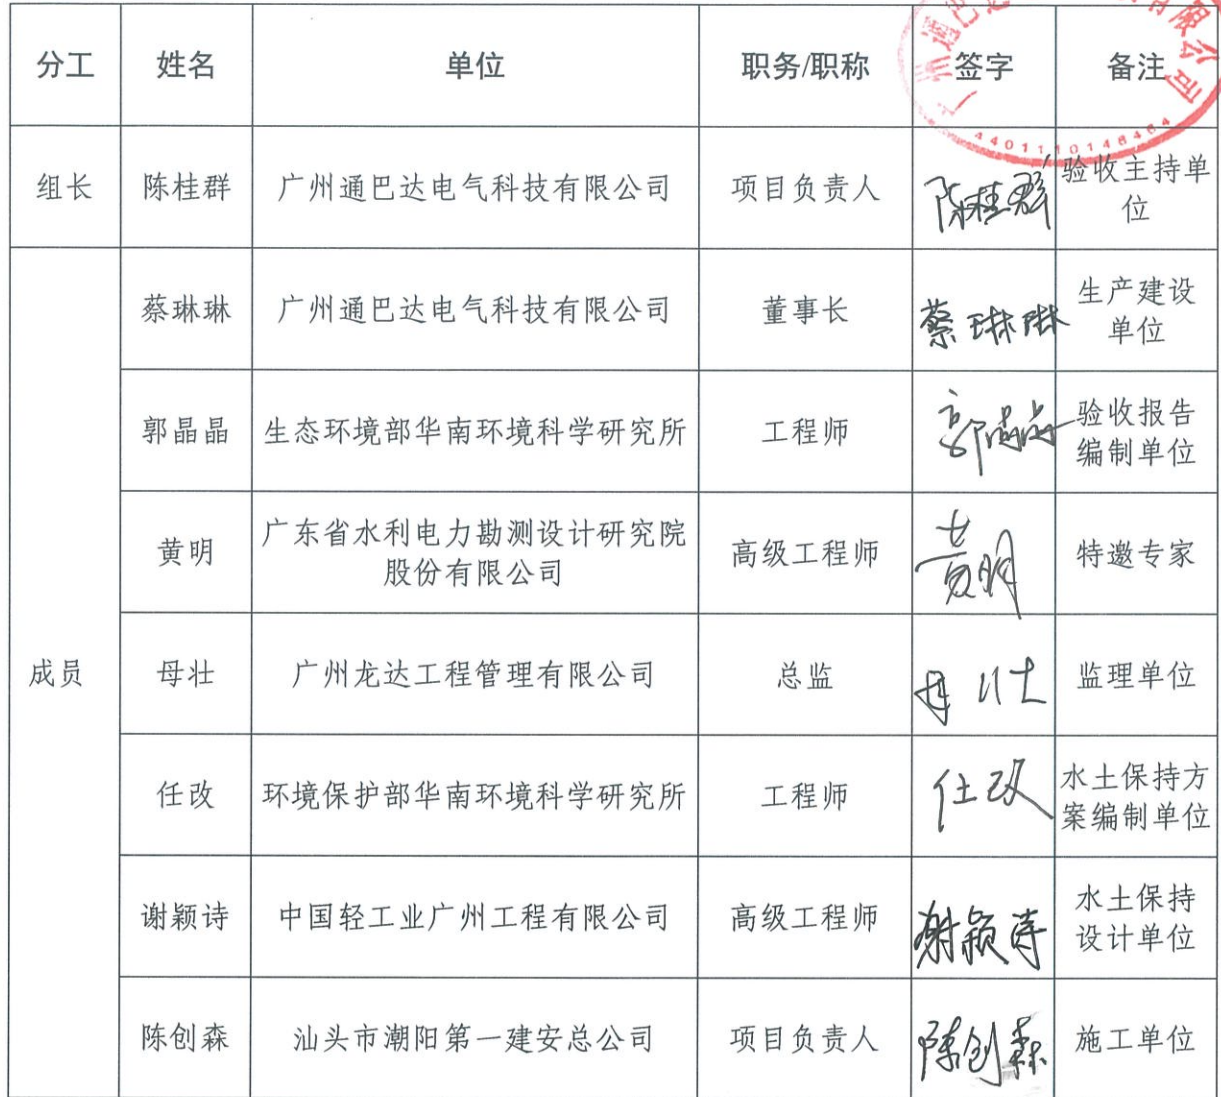 分工 姓名 单位 职务/职称 签字 备注
4401110148464
组长 陈桂群 广州通巴达电气科技有限公司 项目负责人 陈桂群 验收主持单
位
成员
蔡琳琳 广州通巴达电气科技有限公司 董事长 蔡琳琳 生产建设
单位
郭晶晶 生态环境部华南环境科学研究所 工程师 郭晶晶 验收报告
编制单位
黄明 广东省水利电力勘测设计研究院
股份有限公司 高级工程师 黄明 特邀专家
母壮 广州龙达工程管理有限公司 总监 母壮 监理单位
任改 环境保护部华南环境科学研究所 工程师 任改 水土保持方
案编制单位
谢颖诗 中国轻工业广州工程有限公司 高级工程师 谢颖诗 水土保持
设计单位
陈创森 汕头市潮阳第一建安总公司 项目负责人 陈创森 施工单位